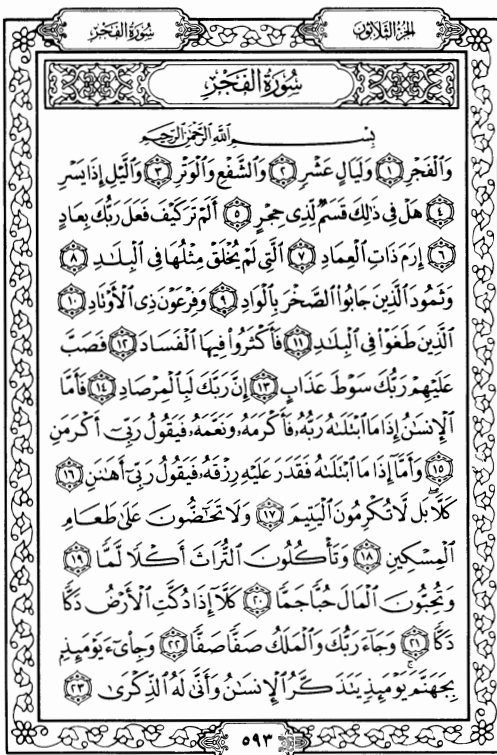 الجزء الثلاثون
سورة الفجر
سُورَةُ الفَجْرِ
بِسْمِ اللَّهِ الرَّحْمَٰنِ الرَّحِيمِ
وَالْفَجْرِ ١ وَلَيَالٍ عَشْرٍ ٢ وَالشَّفْعِ وَالْوَتْرِ ٣ وَاللَّيْلِ إِذَا يَسْرِ
٤ هَلْ فِي ذَٰلِكَ قَسَمٌ لِّذِي حِجْرٍ ٥ أَلَمْ تَرَ كَيْفَ فَعَلَ رَبُّكَ بِعَادٍ
٦ إِرَمَ ذَاتِ الْعِمَادِ ٧ الَّتِي لَمْ يُخْلَقْ مِثْلُهَا فِي الْبِلَٰدِ ٨
وَثَمُودَ الَّذِينَ جَابُوا الصَّخْرَ بِالْوَادِ ٩ وَفِرْعَوْنَ ذِي الْأَوْتَادِ ١٠
الَّذِينَ طَغَوْا فِي الْبِلَٰدِ ١١ فَأَكْثَرُوا فِيهَا الْفَسَادَ ١٢ فَصَبَّ
عَلَيْهِمْ رَبُّكَ سَوْطَ عَذَابٍ ١٣ إِنَّ رَبَّكَ لَبِالْمِرْصَادِ ١٤ فَأَمَّا
الْإِنسَٰنُ إِذَا مَا ابْتَلَىٰهُ رَبُّهُۥ فَأَكْرَمَهُۥ وَنَعَّمَهُۥ فَيَقُولُ رَبِّي أَكْرَمَنِ
١٥ وَأَمَّا إِذَا مَا ابْتَلَىٰهُ فَقَدَرَ عَلَيْهِ رِزْقَهُۥ فَيَقُولُ رَبِّي أَهَٰنَنِ ١٦
كَلَّا ۖ بَل لَّا تُكْرِمُونَ الْيَتِيمَ ١٧ وَلَا تَحَٰضُّونَ عَلَىٰ طَعَامِ
الْمِسْكِينِ ١٨ وَتَأْكُلُونَ التُّرَاثَ أَكْلًا لَّمًّا ١٩
وَتُحِبُّونَ الْمَالَ حُبًّا جَمًّا ٢٠ كَلَّا إِذَا دُكَّتِ الْأَرْضُ دَكًّا
دَكًّا ٢١ وَجَاءَ رَبُّكَ وَالْمَلَكُ صَفًّا صَفًّا ٢٢ وَجِا۟ىٓءَ يَوْمَئِذٍۭ
بِجَهَنَّمَ ۚ يَوْمَئِذٍ يَتَذَكَّرُ الْإِنسَٰنُ وَأَنَّىٰ لَهُ الذِّكْرَىٰ ٢٣
٥٩٣